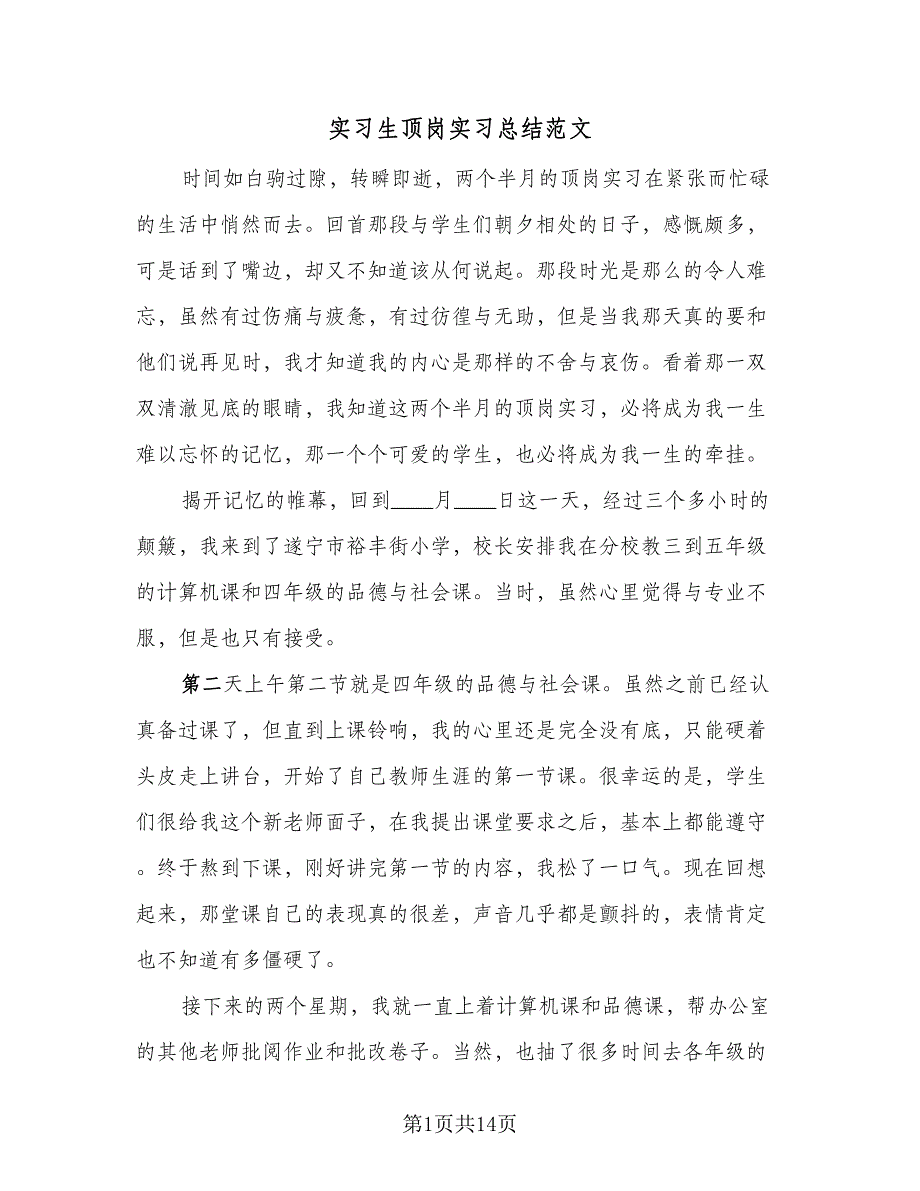 实习生顶岗实习总结范文
时间如白驹过隙，转瞬即逝，两个半月的顶岗实习在紧张而忙碌
的生活中悄然而去。回首那段与学生们朝夕相处的日子，感慨颇多，
可是话到了嘴边，却又不知道该从何说起。那段时光是那么的令人难
忘，虽然有过伤痛与疲惫，有过彷徨与无助，但是当我那天真的要和
他们说再见时，我才知道我的内心是那样的不舍与哀伤。看着那一双
双清澈见底的眼睛，我知道这两个半月的顶岗实习，必将成为我一生
难以忘怀的记忆，那一个个可爱的学生，也必将成为我一生的牵挂。
揭开记忆的帷幕，回到____月____日这一天，经过三个多小时的
颠簸，我来到了遂宁市裕丰街小学，校长安排我在分校教三到五年级
的计算机课和四年级的品德与社会课。当时，虽然心里觉得与专业不
服，但是也只有接受。
第二天上午第二节就是四年级的品德与社会课。虽然之前已经认
真备过课了，但直到上课铃响，我的心里还是完全没有底，只能硬着
头皮走上讲台，开始了自己教师生涯的第一节课。很幸运的是，学生
们很给我这个新老师面子，在我提出课堂要求之后，基本上都能遵守
。终于熬到下课，刚好讲完第一节的内容，我松了一口气。现在回想
起来，那堂课自己的表现真的很差，声音几乎都是颤抖的，表情肯定
也不知道有多僵硬了。
接下来的两个星期，我就一直上着计算机课和品德课，帮办公室
的其他老师批阅作业和批改卷子。当然，也抽了很多时间去各年级的
第1页共14页